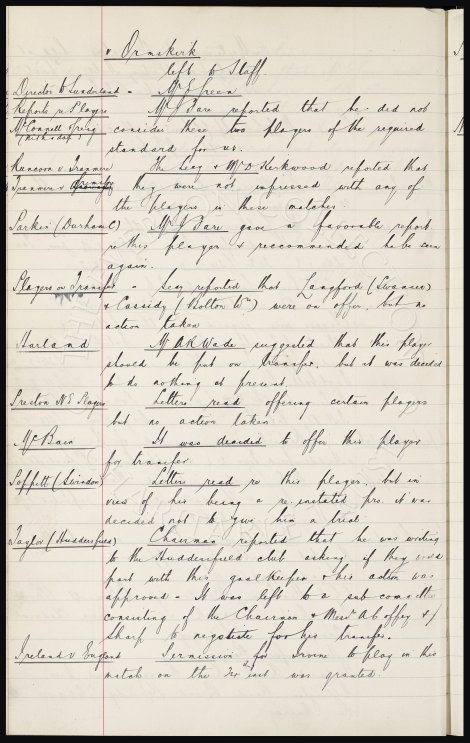 v Ormskirk
left to Staff.
Director to Sunderland - Mr Green
Reports re Players Mr J Fare reported that he did not
McConnell & Greig consider these two players of the required
standard for us.
Runcorn v Tranmere The Secy & Mr D Kirkwood reported that
Tranmere v they were not impressed with any of
the players in these matches.
Parker (Durham C) Mr J Fare gave a favorable report
re this player & reccommended he be seen
again.
Players on Transfer - Secy reported that Langford (Swansea)
& Cassidy (Bolton Wrs) were on offer, but no
action taken
Harland Mr A R Wade suggested that this player
should be put on transfer, but it was decided
to do nothing at present.
Preston N E Players Letters read offering certain players
but no action taken
McBain It was decided to offer this player
for transfer.
Soffitt (Swindon) Letters read re this player, but in
view of his being a re-instated pro. it was
decided not to give him a trial
Taylor (Huddersfield) Chairman reported that he was writing
to the Huddersfield club asking if they would
part with this goalkeeper & his action was
approved - It was left to a sub committee
consisting of the Chairman & Messrs A Coffey &
Sharp to negotiate for his transfer.
Ireland v England Permission for Irvine to play in this
match on the inst was granted.